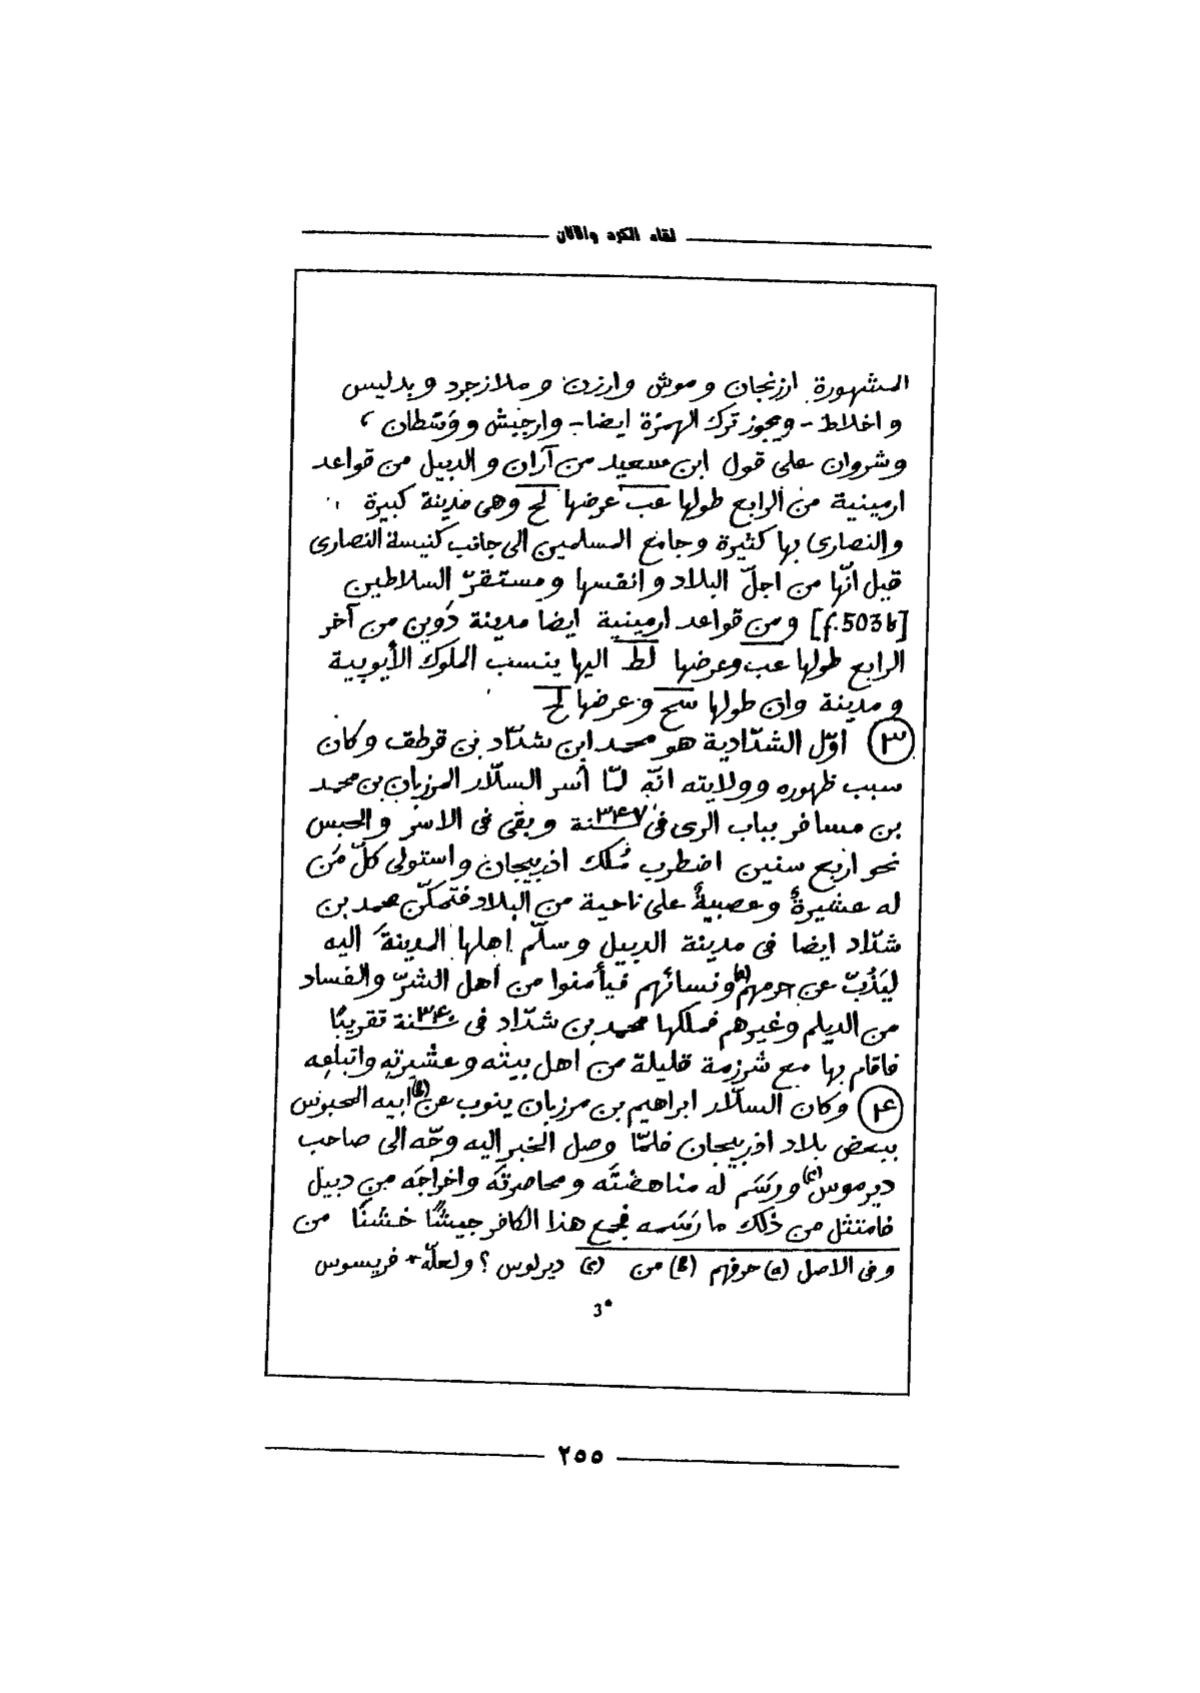 لقاء الكرد واللان
المشهورة ارزنجان وموش وارزن وملازجرد وبدليس
واخلاط - ويجوز ترك الهمزة ايضا - وارجيش ووسطان ،
وشروان على قول ابن سعيد من آران والدبيل من قواعد
ارمينية من الرابع طولها عب عرضها لح وهى مدينة كبيرة
والنصارى بها كثيرة وجامع المسلمين الى جانب كنيسة النصارى
قيل انّها من اجلّ البلاد وانفسها ومستقرّ السلاطين
[f.503b] ومن قواعد ارمينية ايضا مدينة دَوين من آخر
الرابع طولها عب وعرضها لط اليها ينسب الملوك الأيوبية
ومدينة وان طولها سح وعرضها لح
(٣) اوّل الشدّادية هو محمد ابن شدّاد بن قرطق وكان
سبب ظهوره وولايته انّه لمّا أسر السلّار المرزبان بن محمد
بن مسافر بباب الرى فى سنة ٣٣٧ وبقى فى الاسر والحبس
نحو اربع سنين اضطرب مُلك اذربيجان واستولى كلّ مَن
له عشيرةٌ وعصبيةٌ على ناحية من البلاد فتمكّن محمد بن
شدّاد ايضا فى مدينة الدبيل وسلّم اهلها المدينةَ اليه
ليَذُبّ عن حرمهم(a) ونسائهم فيأمنوا من اهل الشرّ والفساد
من الديلم وغيرهم فملكها محمد بن شدّاد فى سنة ٣٤٠ تقريبًا
فاقام بها مع شرزمة قليلة من اهل بيته وعشيرتهِ واتباعِه
(٤) وكان السلّار ابراهيم بن مرزبان ينوب عن(b) ابيه المحبوس
ببعض بلاد اذربيجان فلمّا وصل الخبر اليه وجّه الى صاحب
ديرموس(c) ورَسَم له مناهضتَه ومحاصرتَه واخراجَه من دبيل
فامتثل من ذلك ما رَسَمه فجمع هذا الكافر جيشًا خشنًا من
وفى الاصل (a) حرفهم (b) من (c) ديرلوس ؟ ولعلّه * فريسوس
3*
٢٥٥